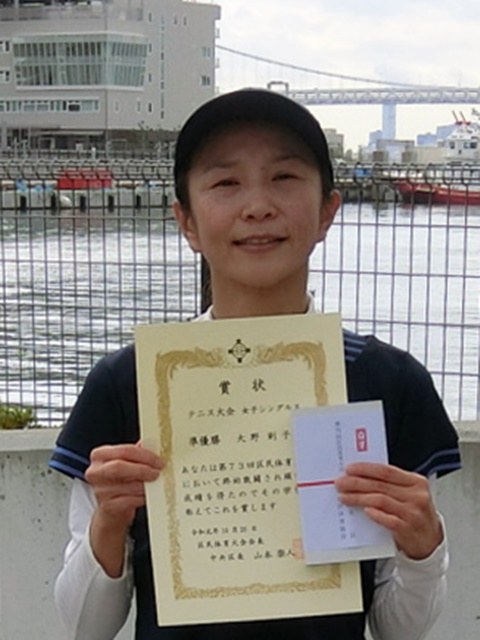 賞状
テニス大会 女子シングルス
準優勝 大野 則子
あなたは第73回区民体育
において終始敢闘され頭
成績を得たのでその栄
称えてこれを賞します
令和元年10月20日
区民体育大会会長
中央区長 山本 泰人